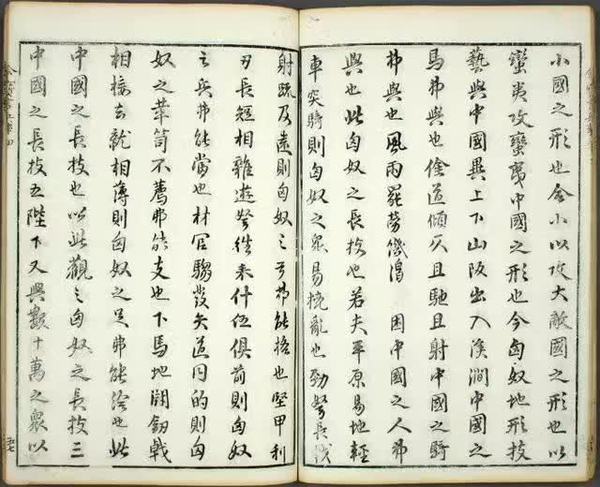 小國之形也合小以攻大敵國之形也以
蠻夷攻蠻夷中國之形也今匈奴地形技
藝與中國異上下山阪出入溪澗中國之
馬弗與也險道傾仄且馳且射中國之騎
弗與也風雨罷勞饑渴 困中國之人弗
與也此匈奴之長技也若夫平原易地輕
車突騎則匈奴之衆易撓亂也勁弩長戟
射疏及遠則匈奴之弓弗能格也堅甲利
刃長短相雜遊弩往来什伍俱前則匈奴
之兵弗能當也材官騶發矢道同的則匈
奴之革笥木薦弗能支也下馬地鬪劍戟
相接去就相薄則匈奴之足弗能給也此
中國之長技也以此觀之匈奴之長技三
中國之長技五陛下又興數十萬之衆以